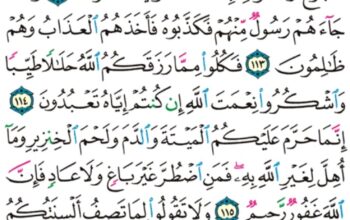 جَآءَهُمْ رَسُولٌ مِّنْهُمْ فَكَذَّبُوهُ فَأَخَذَهُمُ ٱلْعَذَابُ وَهُمْ
ظَٰلِمُونَ ١١٣ فَكُلُوا۟ مِمَّا رَزَقَكُمُ ٱللَّهُ حَلَٰلًا طَيِّبًا
وَٱشْكُرُوا۟ نِعْمَتَ ٱللَّهِ إِن كُنتُمْ إِيَّاهُ تَعْبُدُونَ ١١٤
إِنَّمَا حَرَّمَ عَلَيْكُمُ ٱلْمَيْتَةَ وَٱلدَّمَ وَلَحْمَ ٱلْخِنزِيرِ وَمَآ
أُهِلَّ لِغَيْرِ ٱللَّهِ بِهِۦ ۖ فَمَنِ ٱضْطُرَّ غَيْرَ بَاغٍ وَلَا عَادٍ فَإِنَّ
ٱللَّهَ غَفُورٌ رَّحِيمٌ ١١٥ وَلَا تَقُولُوا۟ لِمَا تَصِفُ أَلْسِنَتُكُمُ